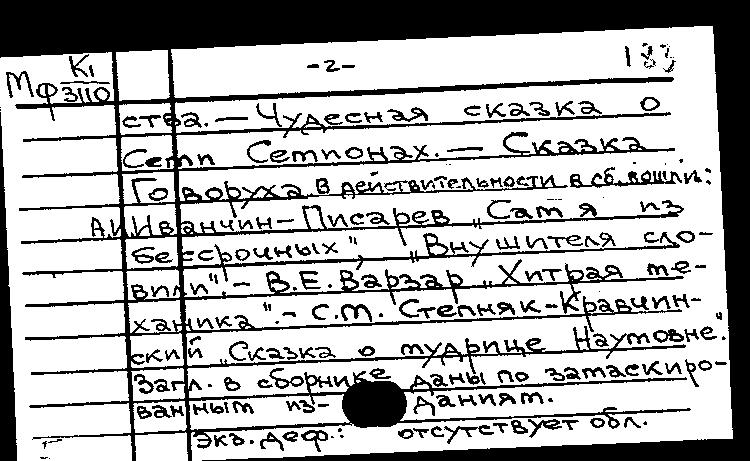 Мф К1/3110 -2- 183
ства. — Чудесная сказка о
Семи Семионах. — Сказка
Говоруха. В действительности в сб. вошли:
А.И.Иванчин-Писарев „Сам я из
бессрочных“, „Внушителя сло-
вили“. - В.Е. Варзар „Хитрая ме-
ханика“. - С.М. Степняк-Кравчин-
ский „Сказка о мудрице Наумовне“.
Загл. в сборнике даны по замаскиро-
ванным из- даниям.
Экз. деф.: отсутствует обл.